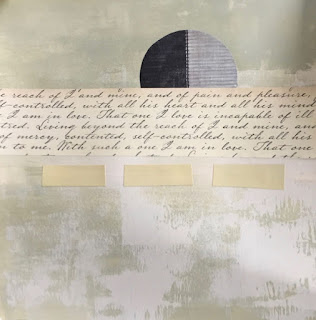 e reach of I and mine, and of pain and pleasure,
f-controlled, with all his heart and all his mind
I am in love. That one I love is incapable of ill
tred. Living beyond the reach of I and mine, and
of mercy, contented, self-controlled, with all his
n to me. With such a one I am in love. That one